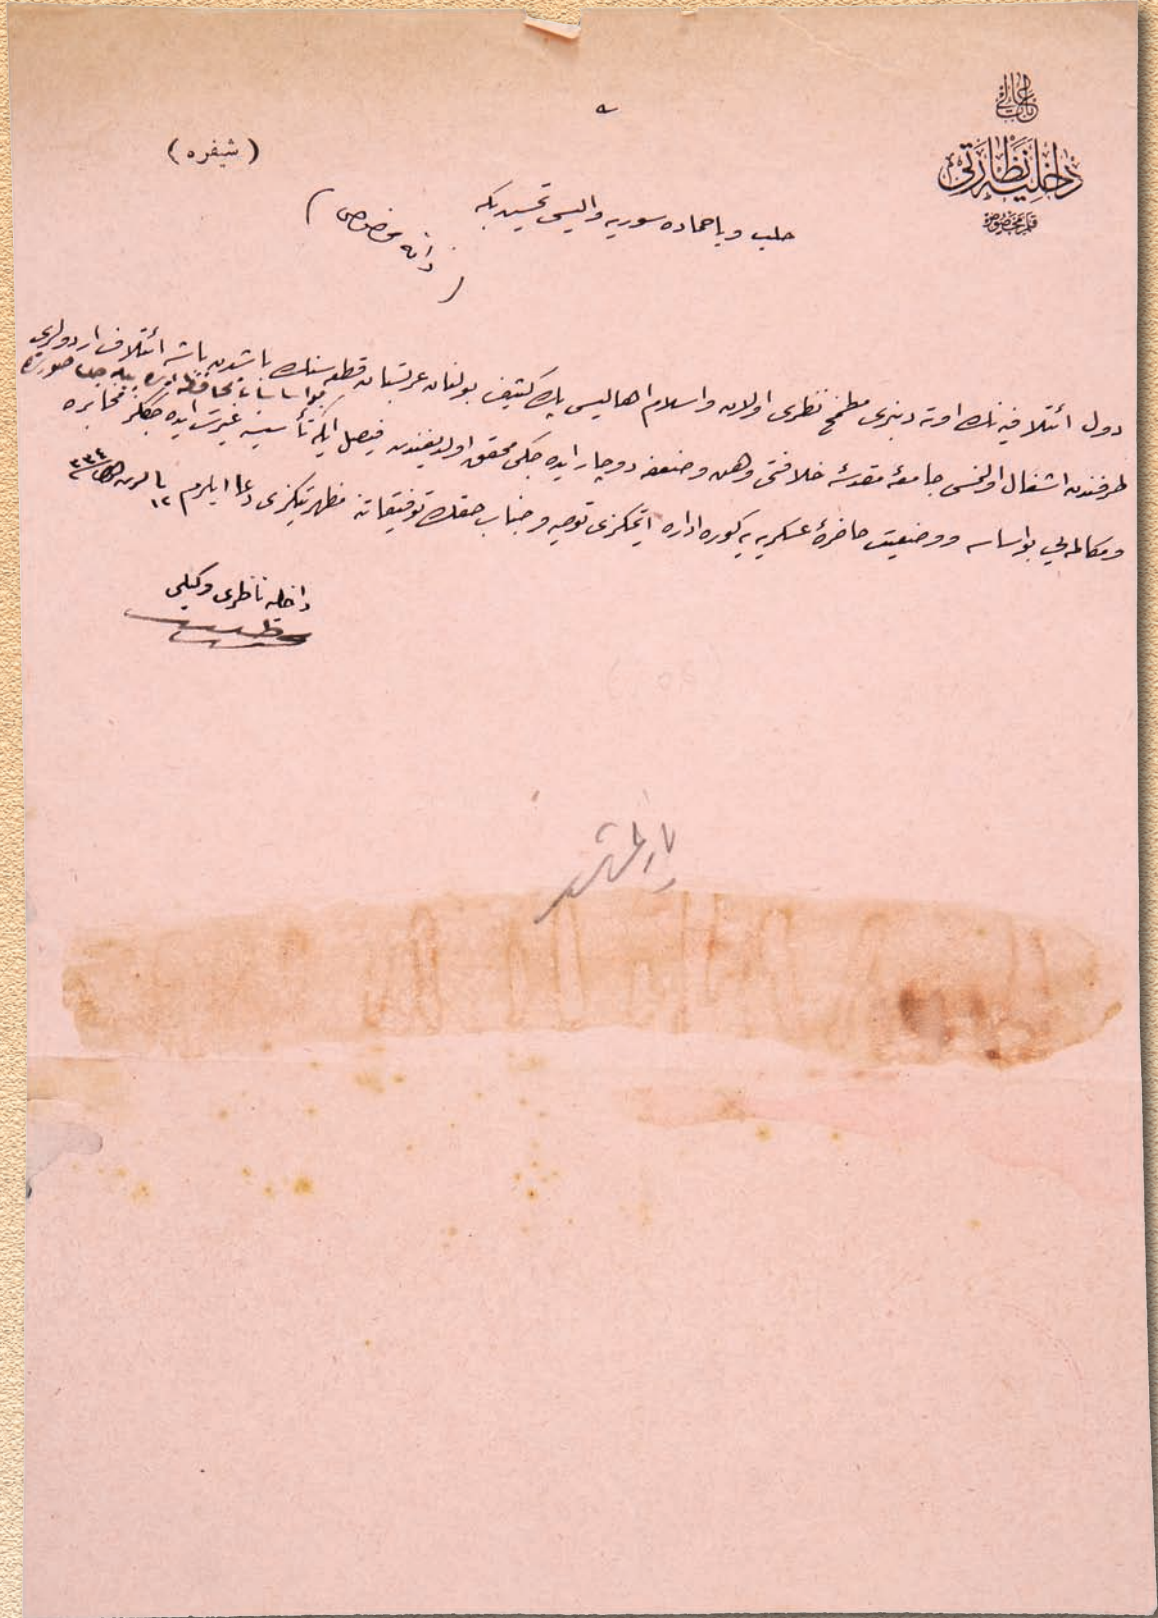 باب عالی
داخلیه نظارتی
قلم مخصوص
( شیفره )
حلب ویا حماده سوریه والیسی تحسین بکه
( ذاته مخصوص )
دول ائتلافیه نك اوته دنبری مطمح نظری اولان واسلام اهالیسی پك كثیف بولنان عربستان قطعه سنك باشدن باشه ائتلاف اردولری
طرفندن اشغال اولنمسی جامعۀ مقدسۀ خلافتی وهن وضعفه دوچار ایده جکی محقق اولدیغندن فیصل ایله تأسیسنه غیرت ایده جککز مخابره
بو اساساتی محافظه ایده بیله جك صورتده
ومکالمه یی بو اساسه ووضعیت حاضرۀ عسکریه یه کوره اداره ایتمکزی توصیه وجناب حقك توفیقاتنه مظهریتکزی دعا ایلرم
۱۲
۳۳٤
داخلیه ناظری وکیلی